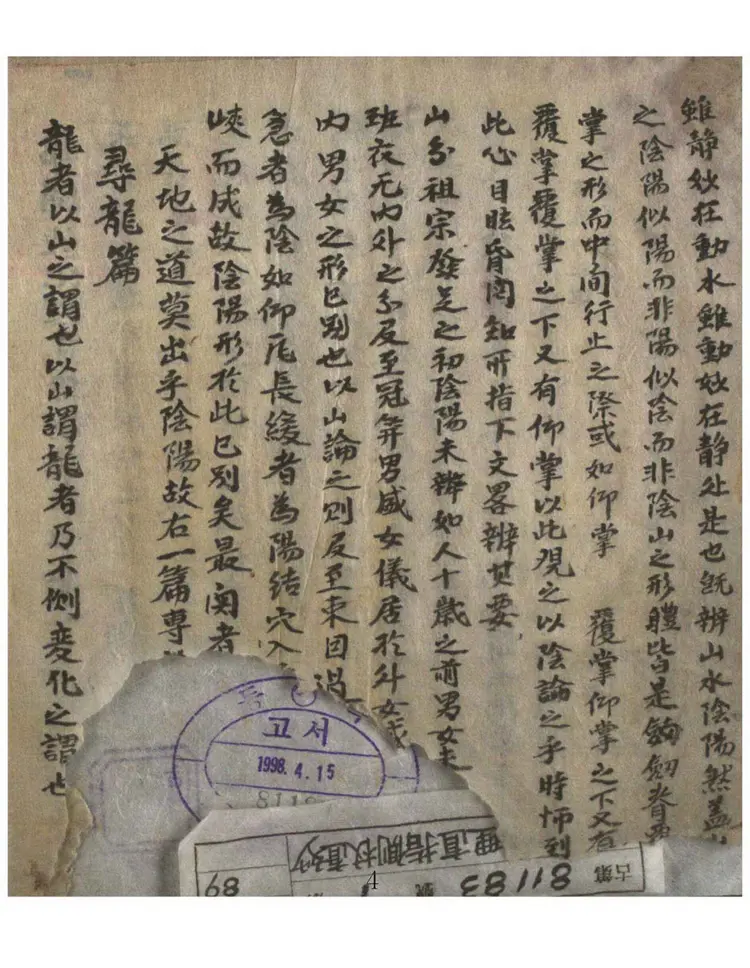 雖静妙在動水雖動妙在静处是也既辨山水陰陽然盖山
之陰陽似陽而非陽似陰而非陰山之形體皆是
掌之形而中間行止之際或如仰掌 覆掌仰掌之下又有
覆掌覆掌之下又有仰掌以此觀之以陰論之乎時師到
此心目眩昏罔知所指下文畧辨其要
山分祖宗發足之初陰陽未辨如人十歲之前男女未
班衣无内外之分及至冠笄男威女儀居於外女
内男女之形已別也以山論之則及至束
急者為陰如仰 長緩者為陽結穴入
峽而成故陰陽形於此已別矣最 者
天地之道莫出乎陰陽故右一篇専
尋龍篇
龍者以山之謂也以山謂龍者乃不側変化之謂也
고서
1998. 4. 15
811
理直指側杖直妙
古第 81183 號
89
4